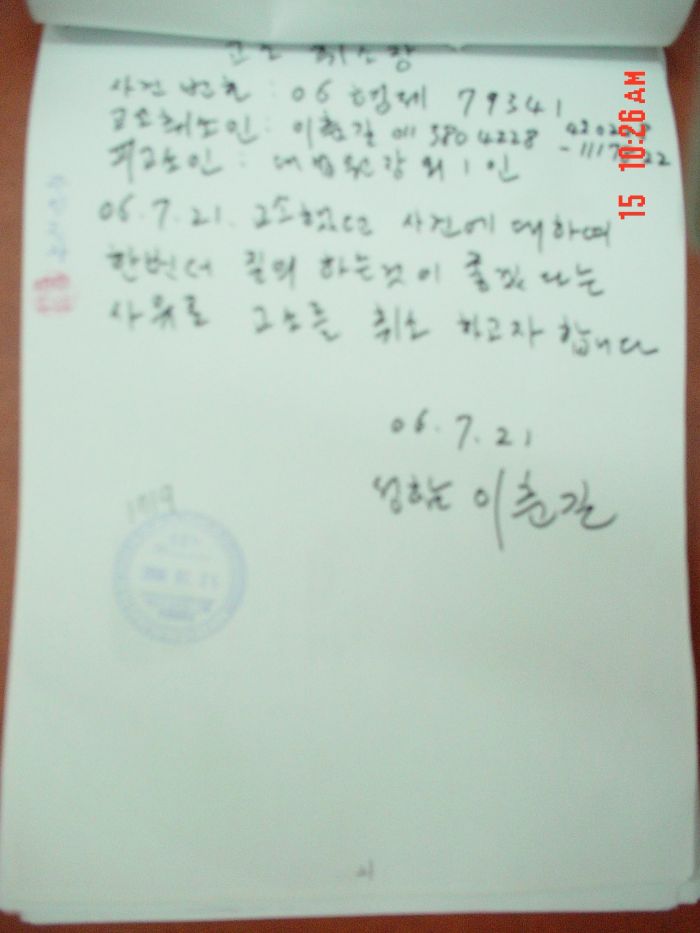 고소 취소장
사건 번호 : 06 형제 79341
고소취소인 : 이춘길 011 580 4228
피고소인 : 대법원장 외 1인
06.7.21. 고소했던 사건에 대하여
한번더 질의 하는것이 좋겠다는
사유로 고소를 취소 하고자 합니다
06. 7. 21
성함 이춘길
15 10:26 AM